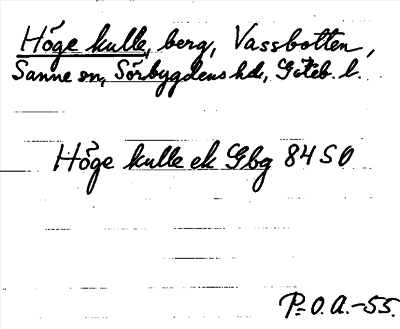 Höge kulle, berg, Vassbotten,
Sanne sn, Sörbygdens hd, Göteb. l.
Höge kulle ek Gbg 84 SO
P.O.A.-55.